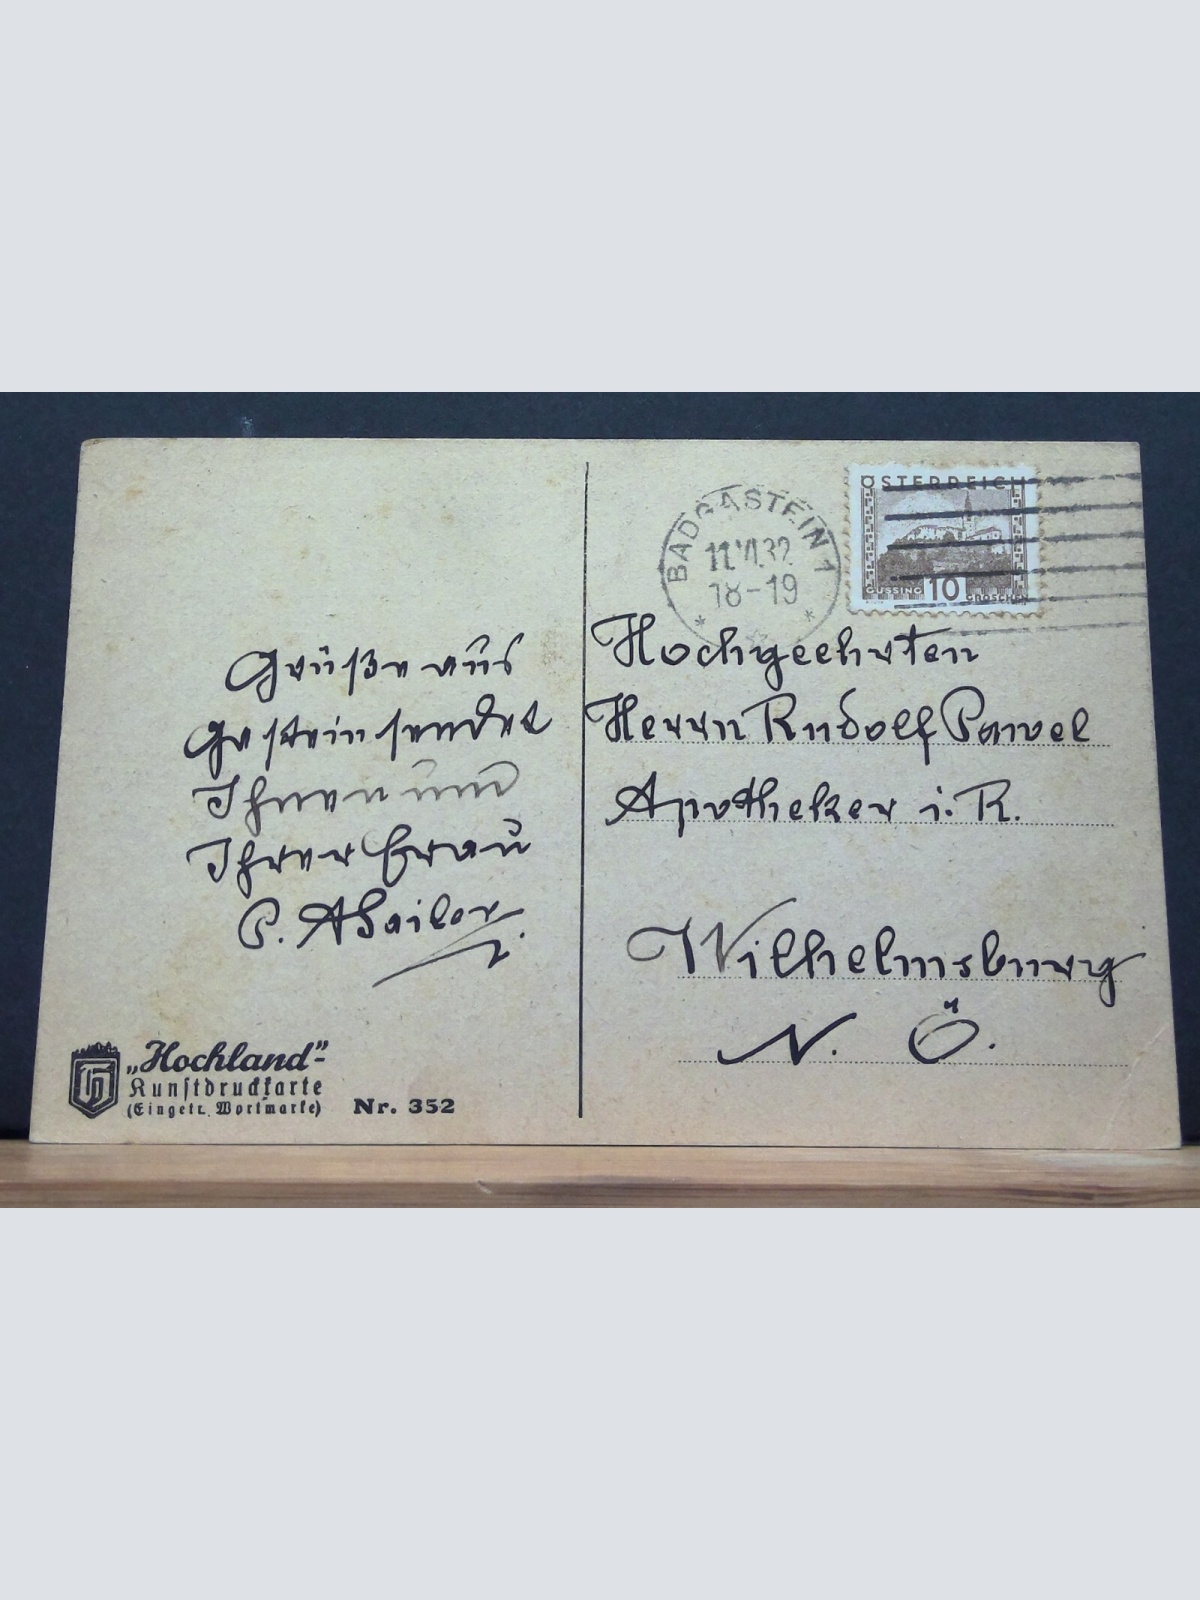 Grüße aus
Gastein sendet
Ihnen und
Ihrer Frau
P.
"Hochland"-
Kunstdruckkarte
(Eingetr. Wortmarke) Nr. 352
BADGASTEIN 1
11.VI.32
18-19
ÖSTERREICH
GÜSSING 10 GROSCHEN
Hochgeehrten
Herrn Rudolf Pawel
Apotheker i. R.
Wilhelmsburg
N. Ö.